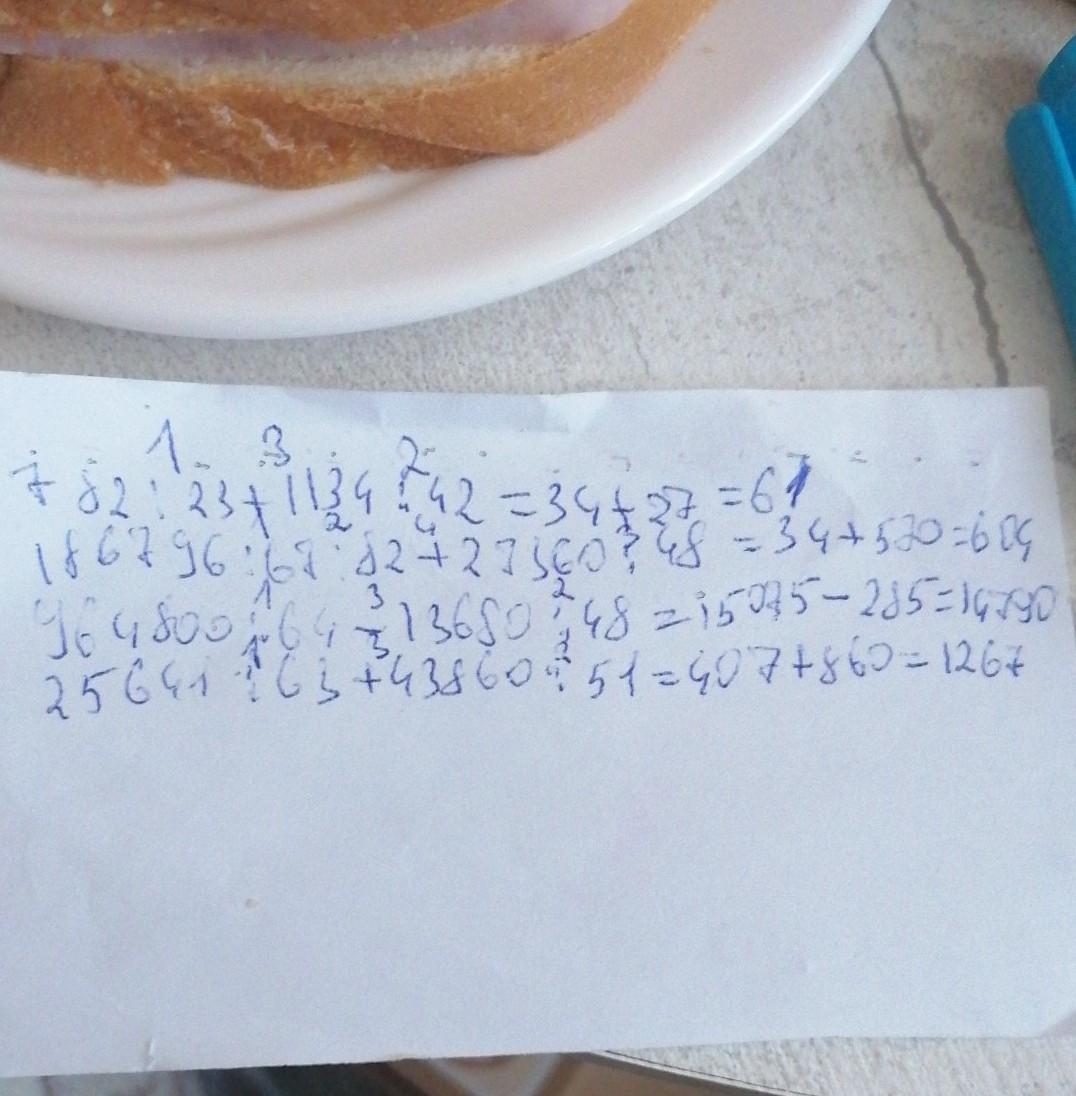 1 3 2
782 : 23 + 1134 : 42 = 34 + 27 = 61
2 4 3
186796 : 67 : 82 + 27360 : 48 = 34 + 570 = 604
1 3 2
964800 : 64 - 13680 : 48 = 15075 - 285 = 14790
1 3 2
25641 : 63 + 43860 : 51 = 407 + 860 = 1267